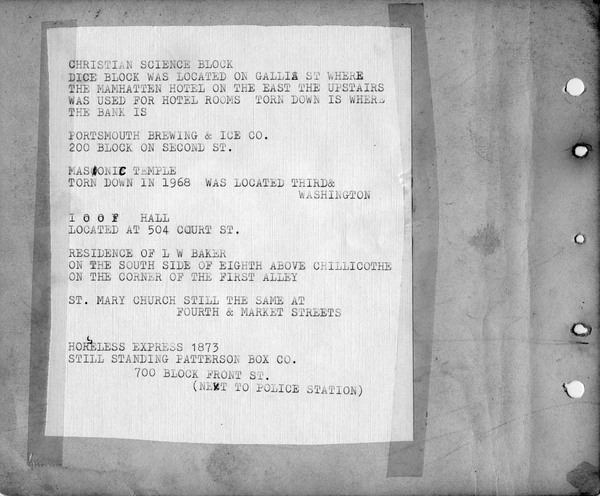 CHRISTIAN SCIENCE BLOCK
DICE BLOCK WAS LOCATED ON GALLIA ST WHERE
THE MAMHATTEN HOTEL ON THE EAST THE UPSTAIRS
WAS USED FOR HOTEL ROOMS TORN DOWN IS WHERE
THE BANK IS
PORTSMOUTH BREWING & ICE CO.
200 BLOCK ON SECOND ST.
MASONIC TEMPLE
TORN DOWN IN 1968 WAS LOCATED THIRD&
WASHINGTON
I O O F HALL
LOCATED AT 504 COURT ST.
RESIDENCE OF L W BAKER
ON THE SOUTH SIDE OF EIGHTH ABOVE CHILLICOTHE
ON THE CORNER OF THE FIRST ALLEY
ST. MARY CHURCH STILL THE SAME AT
FOURTH & MARKET STREETS
HORSELESS EXPRESS 1873
STILL STANDING PATTERSON BOX CO.
700 BLOCK FRONT ST.
(NEXT TO POLICE STATION)